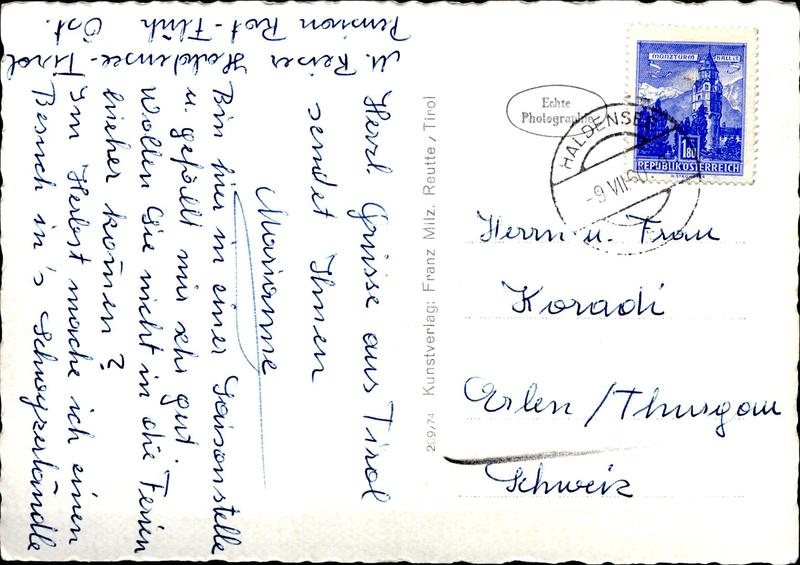 M. Reiser Haldensee-Tirol
Pension Rot-Flüh Öst.
Herzl. Grüsse aus Tirol
sendet Ihnen
Marianne
Bin hier in einer Saisonstelle
u. gefällt mir sehr gut.
Wollen Sie nicht in die Ferien
hieher kom̄en?
Im Herbst mache ich einen
Besuch in's Schwyzerländle
Kunstverlag: Franz Milz, Reutte / Tirol
269/74
Echte
Photographie
MÜNZTURM HALL I.T.
1.80
REPUBLIK ÖSTERREICH
HALDENSEE
-9.VII.60
Herrn u. Frau
Koradi
Erlen / Thurgau
Schweiz